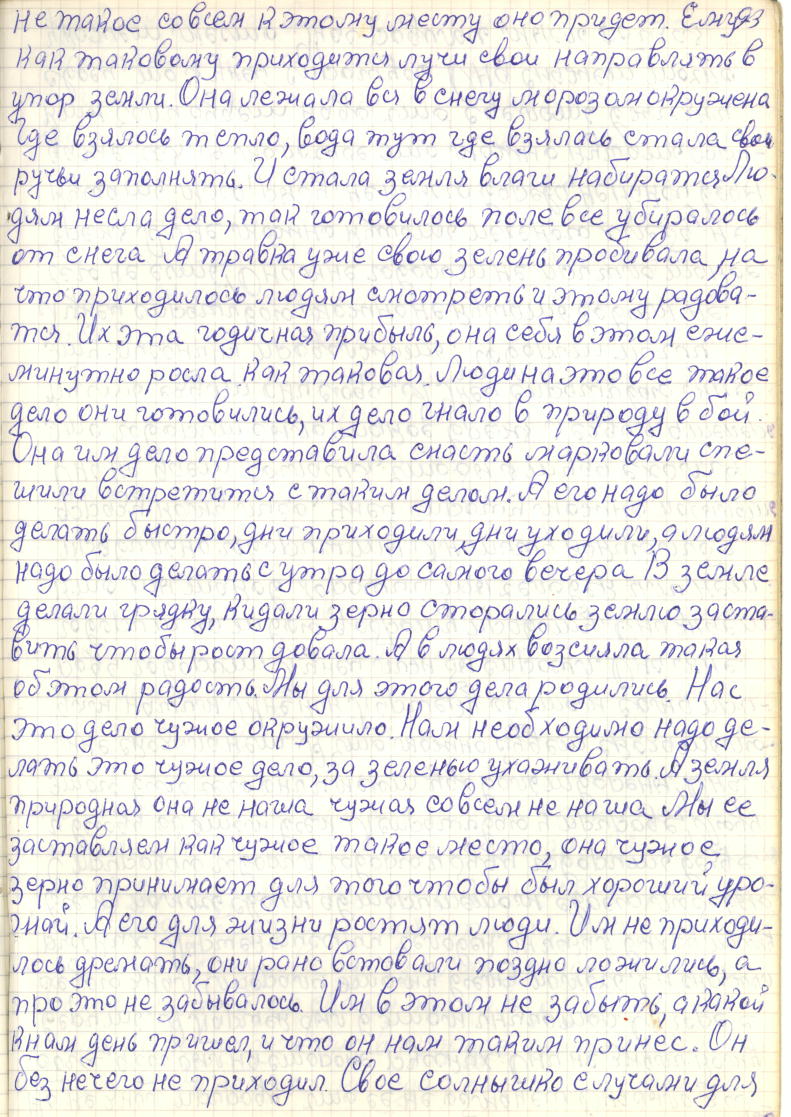 не такое совсем к этому месту оно придет. Ему
как таковому приходится лучи свои направлять в
упор земли. Она лежала вся в снегу морозом окружена
Где взялось тепло, вода тут где взялась стала свои
ручьи заполнять. И стала земля влаги набиратся Лю-
дям несла дело, так готовилось поле все убиралось
от снега А травка уже свою зелень пробивала, на
что приходилось людям смотреть и этому радова-
тся. Их эта годичная прибыль, она себя в этом еже-
минутно росла как таковая. Люди на это все такое
дело они готовились, их дело гнало в природу в бой.
Она им дело представила снасть марковали спе-
шили встретится с таким делом. А его надо было
делать быстро, дни приходили, дни уходили, а людям
надо было делать с утра до самого вечера В земле
делали грядку, кидали зерно сторались землю заста-
вить чтобы рост довала. А в людях возсияла такая
об этом радость. Мы для этого дела родились. Нас
это дело чужое окружило. Нам необходимо надо де-
лать это чужое дело, за зеленью ухаживать. А земля
природная она не наша чужая совсем не наша Мы ее
заставляем как чужое такое место, она чужое
зерно принимает для того чтобы был хороший уро-
жай. А его для жизни ростят люди. Им не приходи-
лось дремать, они рано вставали поздно ложились, а
про это не забывалось. Им в этом не забыть, а какой
к нам день пришел, и что он нам таким принес. Он
без нечего не приходил. Свое солнышко с лучами для